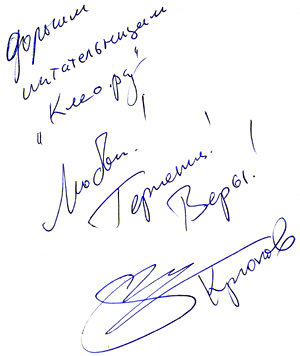 Дорогим
читательницам
"Клео.ру"
Любви!
Терпения!
Веры!
Крюков